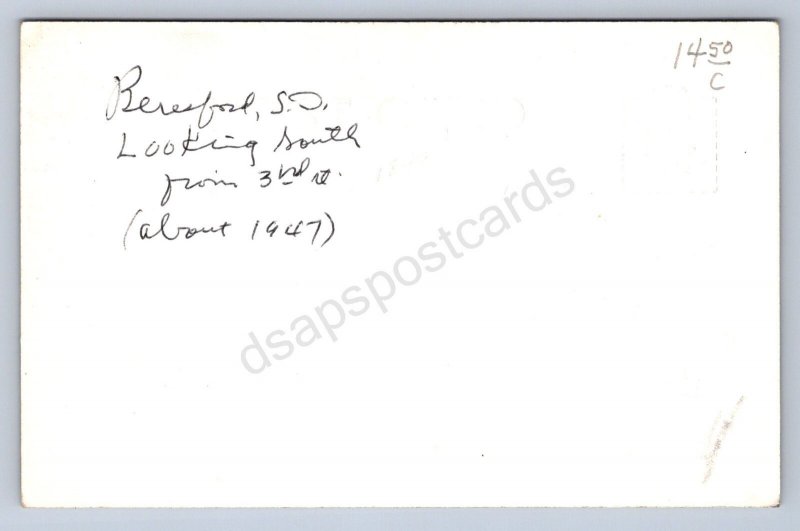 14 50
C
Beresford, S.D.
Looking South
from 3rd st.
(about 1947)
dsapspostcards